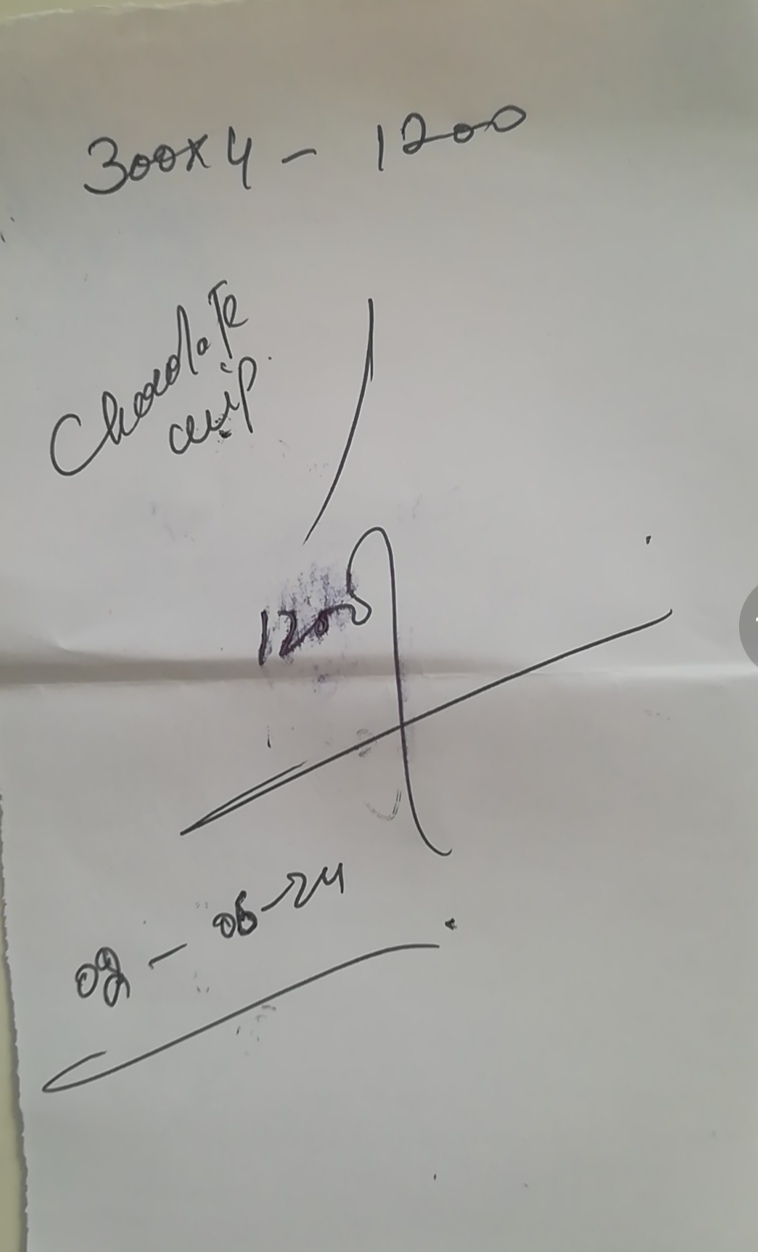 300x4 - 1200
Chocolate
chip
1200
- 06-24